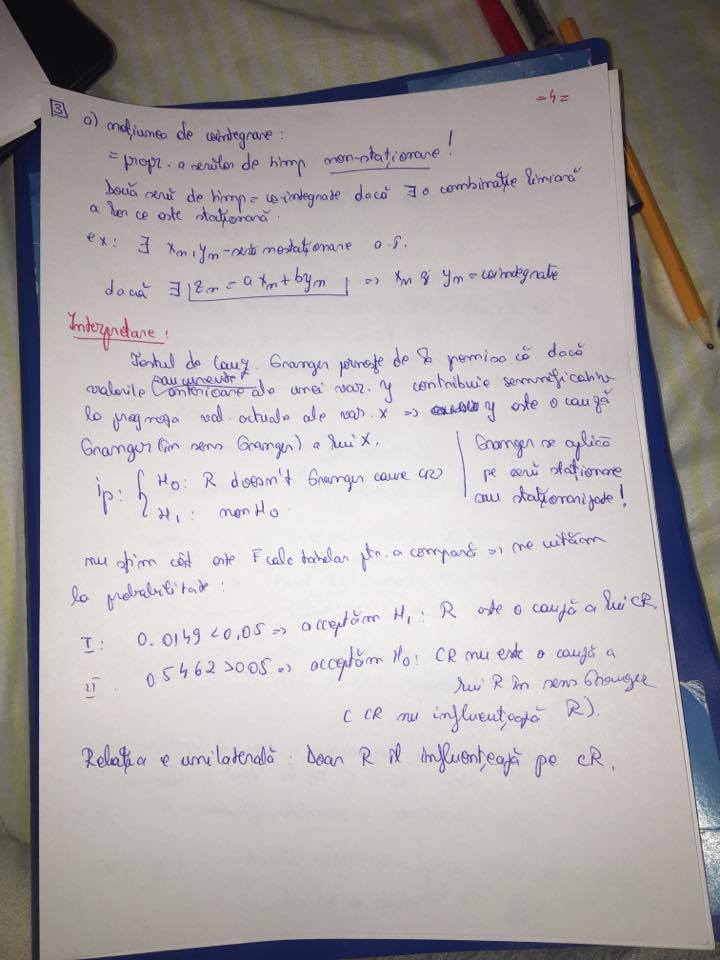 =4=
3 a) noțiunea de cointegrare:
= propr. a seriilor de timp non-staționare!
Două serii de timp = cointegrate dacă ∃ o combinație liniară
a lor ce este staționară.
ex: ∃ xn, yn - serii nestaționare a.î.
dacă ∃ zn = a xn + byn => xn și yn = cointegrate
Interpretare:
Testul de Cauz. Granger pornește de la premisa că dacă
valorile anterioare ale unei var. y contribuie semnificativ
la prognoza val. actuale ale var. x => y este o cauză
Granger (în sens Granger) a lui X.
ip: { H0: R doesn't Granger cause CR
H1: non H0
Granger se aplică
pe serii staționare
sau staționarizate!
nu știm cât este F calc tabelar ptr. a compara => ne uităm
la probabilitate:
I: 0.0149 < 0,05 => acceptăm H1: R este o cauză a lui CR.
II. 05462 > 005 => acceptăm H0: CR nu este o cauză a
lui R în sens Granger
( CR nu influențează R).
Relația e unilaterală: Doar R îl influențează pe CR.